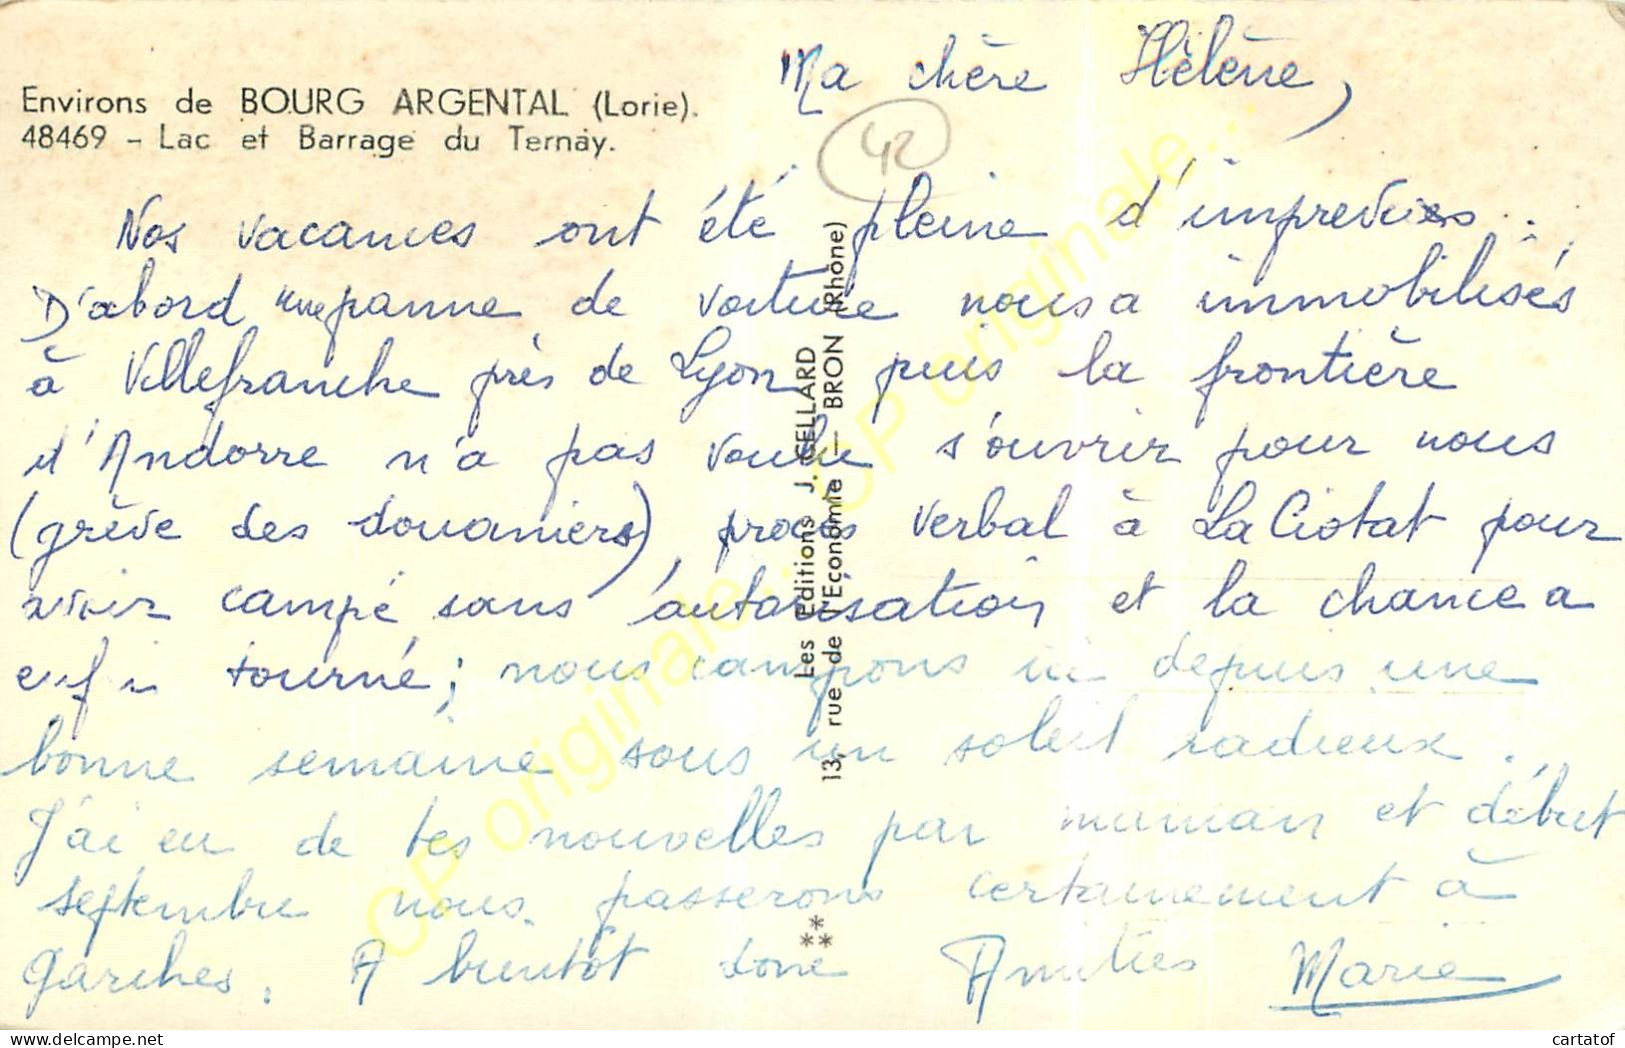 Ma chère Hélène,
Environs de BOURG ARGENTAL (Lorie).
48469 - Lac et Barrage du Ternay.
42
Nos vacances ont été pleine d'imprevues..
D'abord une panne de voiture nous a immobilisés
à Villefranche près de Lyon puis la frontière
d'Andorre n'a pas voulu s'ouvrir pour nous
(grève des douaniers), procès verbal à La Ciotat pour
avoir campé sans l'autorisation et la chance a
enfin tourné; nous campons ici depuis une
bonne semaine sous un soleil radieux.
J'ai eu de tes nouvelles par maman et début
septembre nous passerons certainement à
Garches. A bientôt donc Amitiés Marie
Les Editions J. CELLARD
13, rue de l'Economie — BRON (Rhône)
CP originale... CP originale...
cartatof